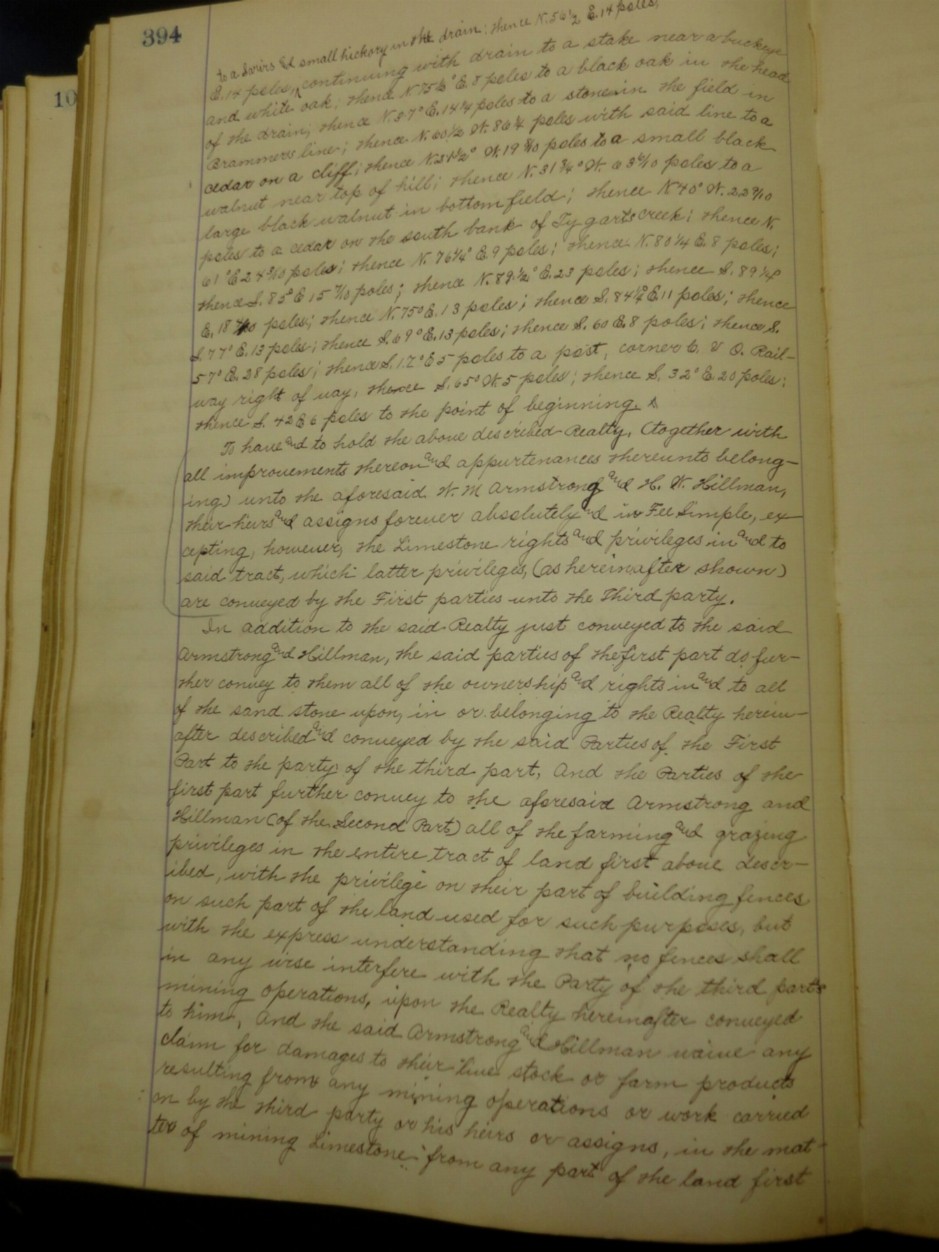 394
10
to a small hickory in the drain; thence N. 56½ E. 14 poles;
E. 14 poles, continuing with drain to a stake near a buckeye
and white oak; thence N. 75½° E. 8 poles to a black oak in the head
of the drain; thence N. 87° E. 14¼ poles to a stone in the field in
Brammers line; thence N. 60½ W. 86¼ poles with said line to a
cedar on a cliff; thence N. 51½° W. 19 poles to a small black
walnut near top of hill; thence N. 31¾° W. poles to a
large black walnut in bottom field; thence N 40° W. 22 9/10
poles to a cedar on the south bank of Tygarts Creek; thence N.
61° E 24 poles; thence N. 76¼° E. 9 poles; thence N. 80¼ E. 8 poles;
thence S. 85° E 15 poles; thence N. 89½° E. 23 poles; thence S. 89¼°
E. 18 poles; thence N. 75° E. 13 poles; thence S. 84½° E. 11 poles; thence
S. 77° E. 13 poles; thence S. 69° E. 13 poles; thence S. 60 E. 8 poles; thence S.
57° E. 28 poles; thence S. 12° E 5 poles to a post, corner C. & O. Rail-
way right of way, thence S. 65° W. 5 poles; thence S. 32° E. 20 poles;
thence S. 42 E 6 poles to the point of beginning.
To have and to hold the above described Realty, (together with
all improvements thereon and appurtenances thereunto belong-
ing) unto the aforesaid W. M Armstrong and H. W. Hillman,
their heirs and assigns forever absolutely and in Fee Simple, ex-
cepting, however, the Limestone rights and privileges in and to
said tract, which latter privileges, (as hereinafter shown)
are conveyed by the First parties unto the Third party.
In addition to the said Realty just conveyed to the said
Armstrong and Hillman, the said parties of the first part do fur-
ther convey to them all of the ownership and rights in and to all
of the sand stone upon, in or belonging to the Realty herein-
after described and conveyed by the said Parties of the First
Part to the party of the third part, And the Parties of the
first part further convey to the aforesaid Armstrong and
Hillman (of the Second Part) all of the farming and grazing
privileges in the entire tract of land first above descr-
ibed, with the privilege on their part of building fences
on such part of the land used for such purposes, but
with the express understanding that no fences shall
in any wise interfere with the Party of the third parts
mining operations, upon the Realty hereinafter conveyed
to him, And the said Armstrong and Hillman waive any
claim for damages to their live stock or farm products
resulting from any mining operations or work carried
on by the third party or his heirs or assigns, in the mat-
ter of mining Limestone from any part of the land first